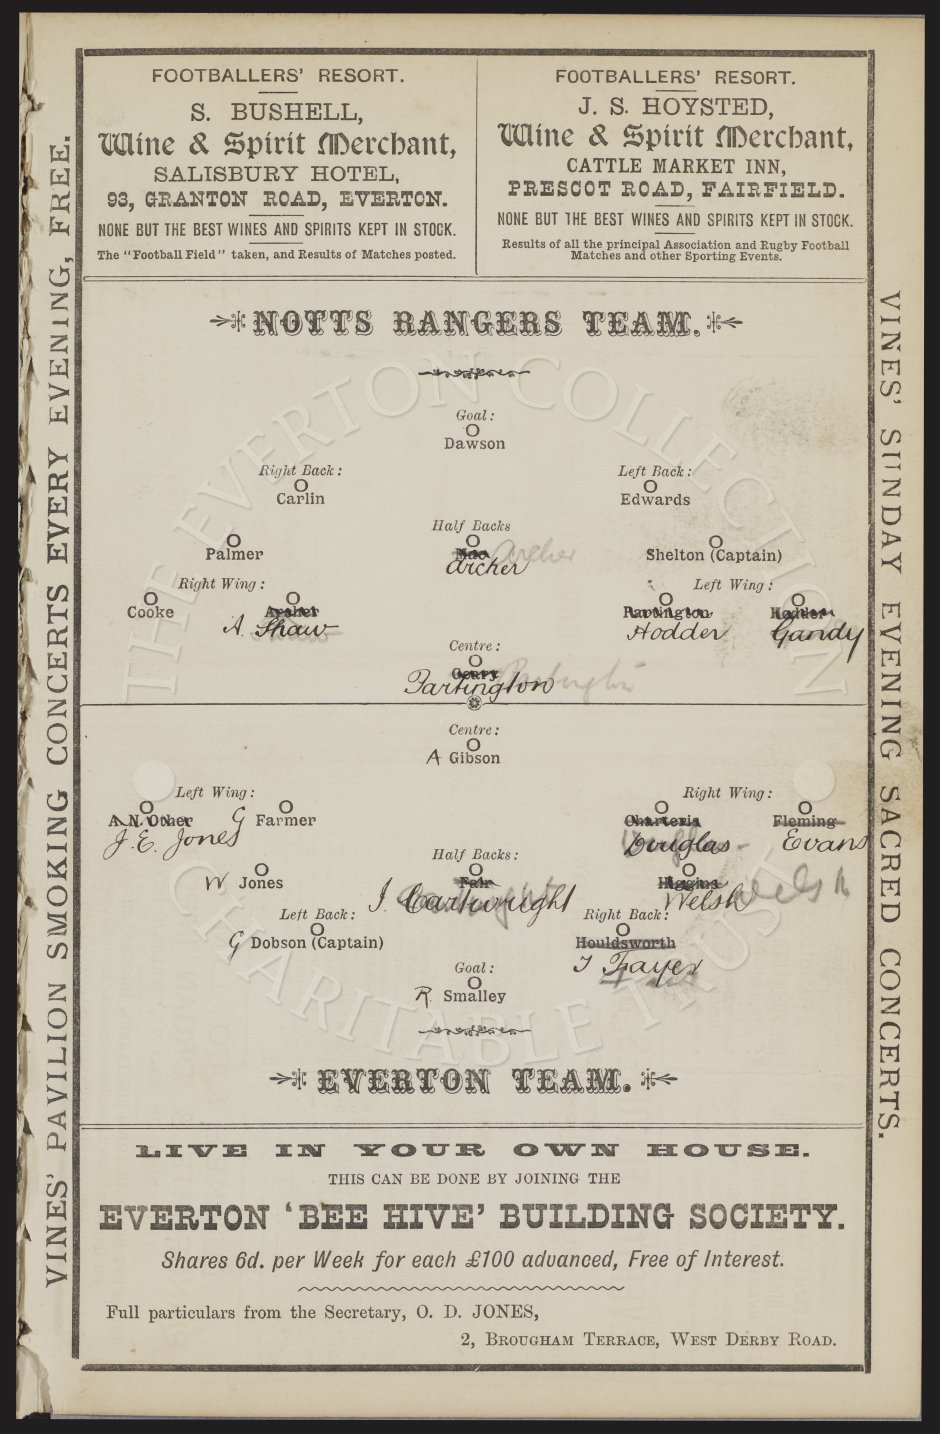 FOOTBALLERS' RESORT.
S. BUSHELL,
Wine & Spirit Merchant,
SALISBURY HOTEL,
93, GRANTON ROAD, EVERTON.
NONE BUT THE BEST WINES AND SPIRITS KEPT IN STOCK.
The "Football Field" taken, and Results of Matches posted.
FOOTBALLERS' RESORT.
J. S. HOYSTED,
Wine & Spirit Merchant,
CATTLE MARKET INN,
PRESCOT ROAD, FAIRFIELD.
NONE BUT THE BEST WINES AND SPIRITS KEPT IN STOCK.
Results of all the principal Association and Rugby Football
Matches and other Sporting Events.
VINES' PAVILION SMOKING CONCERTS EVERY EVENING, FREE.
NOTTS RANGERS TEAM.
Goal:
Dawson
Right Back: Left Back:
Carlin Edwards
Half Backs
Palmer Mac Archer Shelton (Captain)
Archer
Right Wing: Left Wing:
Cooke Archer Partington Hodder
A. Shaw Hodder Gandy
Centre:
Geary Partington
Partington
Centre:
A Gibson
Left Wing: Right Wing:
A. N. Other G Farmer Charteris Fleming
J. E. Jones Douglas Evans
Half Backs:
W Jones Fair Higgins Welsh
J. Cartwright Welsh
Left Back: Right Back:
G Dobson (Captain) Houldsworth
Goal:
R. Smalley
EVERTON TEAM.
VINES' SUNDAY EVENING SACRED CONCERTS.
LIVE IN YOUR OWN HOUSE.
THIS CAN BE DONE BY JOINING THE
EVERTON 'BEE HIVE' BUILDING SOCIETY.
Shares 6d. per Week for each £100 advanced, Free of Interest.
Full particulars from the Secretary, O. D. JONES,
2, BROUGHAM TERRACE, WEST DERBY ROAD.
THE EVERTON COLLECTION
CHARITABLE TRUST